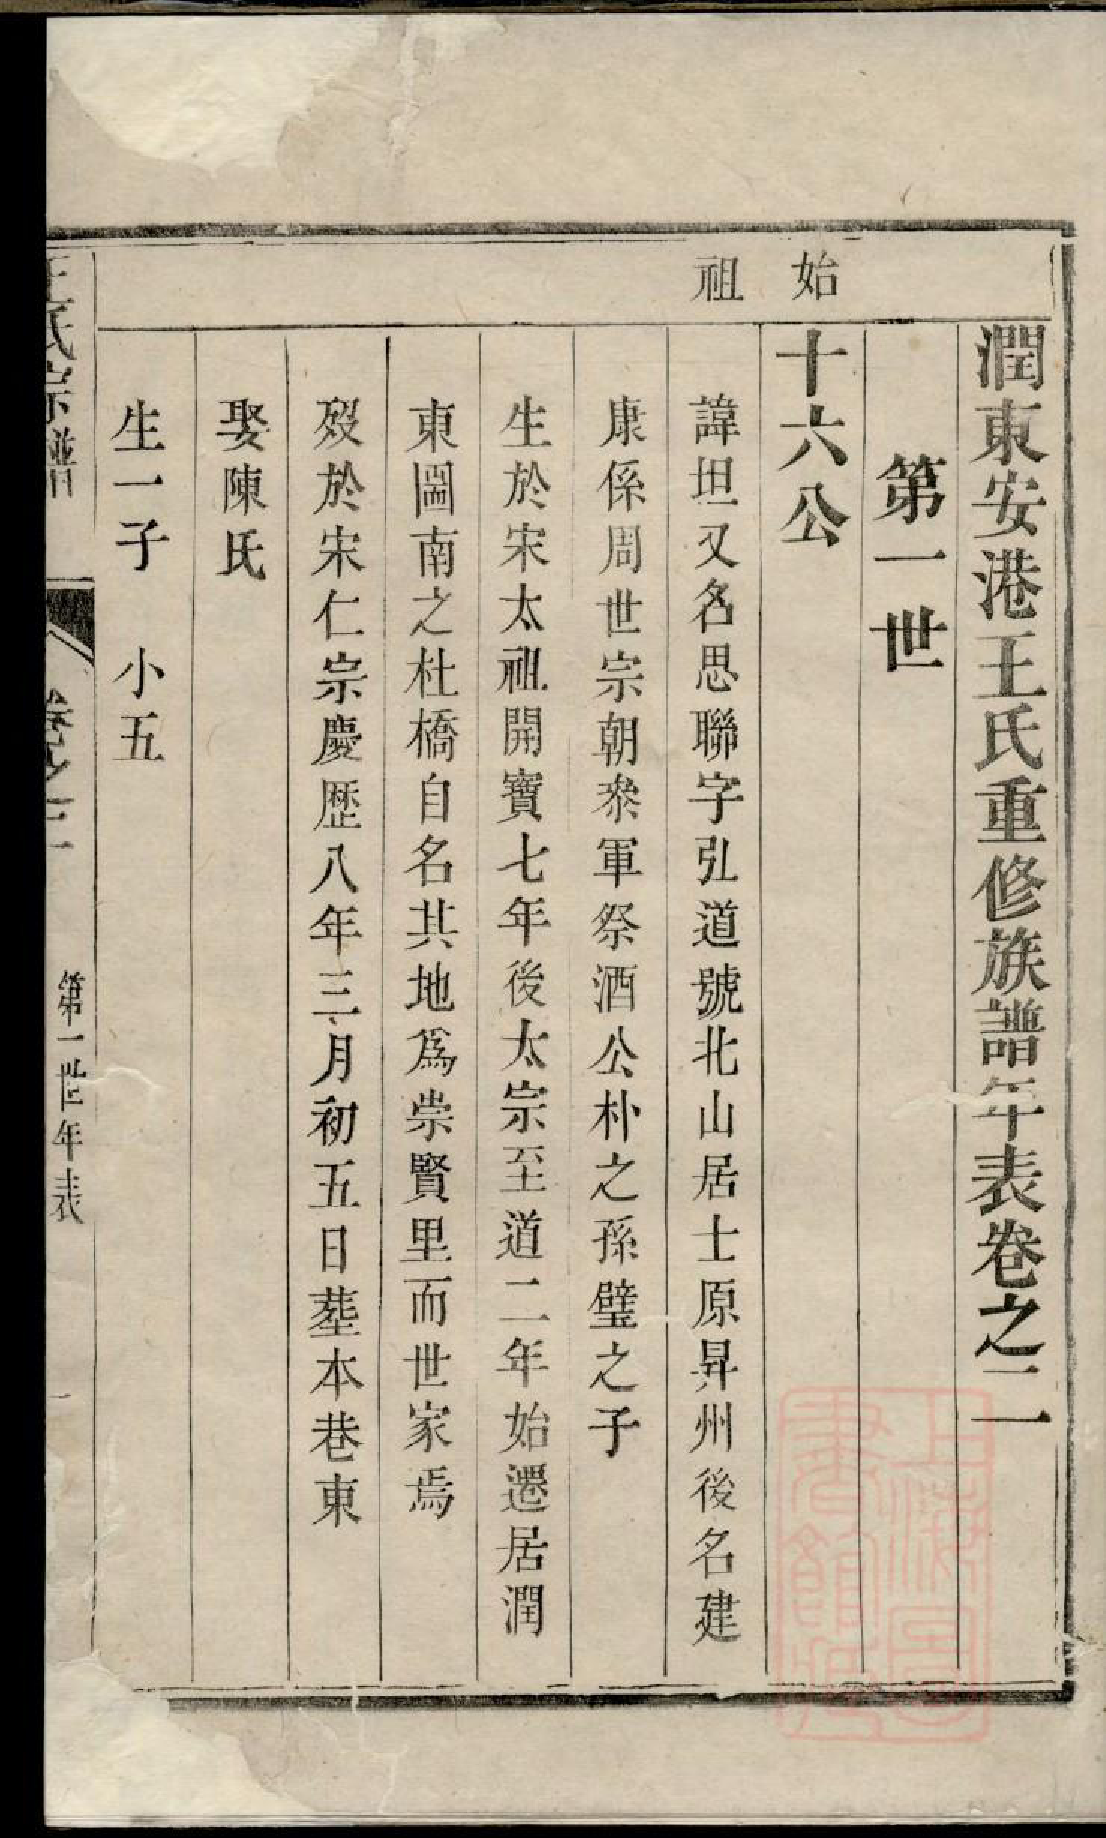 潤東安港王氏重修族譜年表卷之二
第一世
始祖
十六公
諱坦又名思聯字弘道號北山居士原昇州後名建
康係周世宗朝叅軍祭酒公朴之孫璧之子
生於宋太祖開寶七年後太宗至道二年始遷居潤
東圌南之杜橋自名其地爲崇賢里而世家焉
歿於宋仁宗慶歷八年三月初五日塟本巷東
娶陳氏
生一子 小五
王氏宗譜 卷之二 第一世年表 一
上海圖書館藏